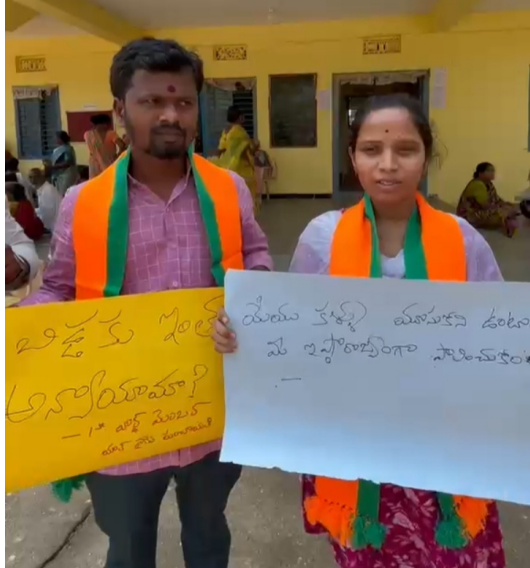 బిడ్డ కు ఇంత
అన్యాయామా?
– 1వ వార్డ్ మెంబర్
మేము కళ్ళు మూసుకొని ఉంటా
మే ఇష్టారాజ్యంగా పాలించుకుం